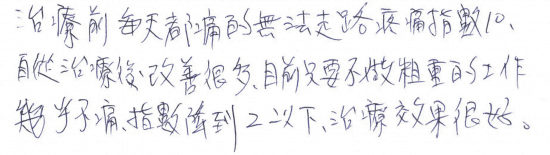 治療前每天都痛的無法走路疼痛指數10、
自從治療後、改善很多、目前只要不做粗重的工作
幾乎不痛、指數降到2以下、治療效果很好。